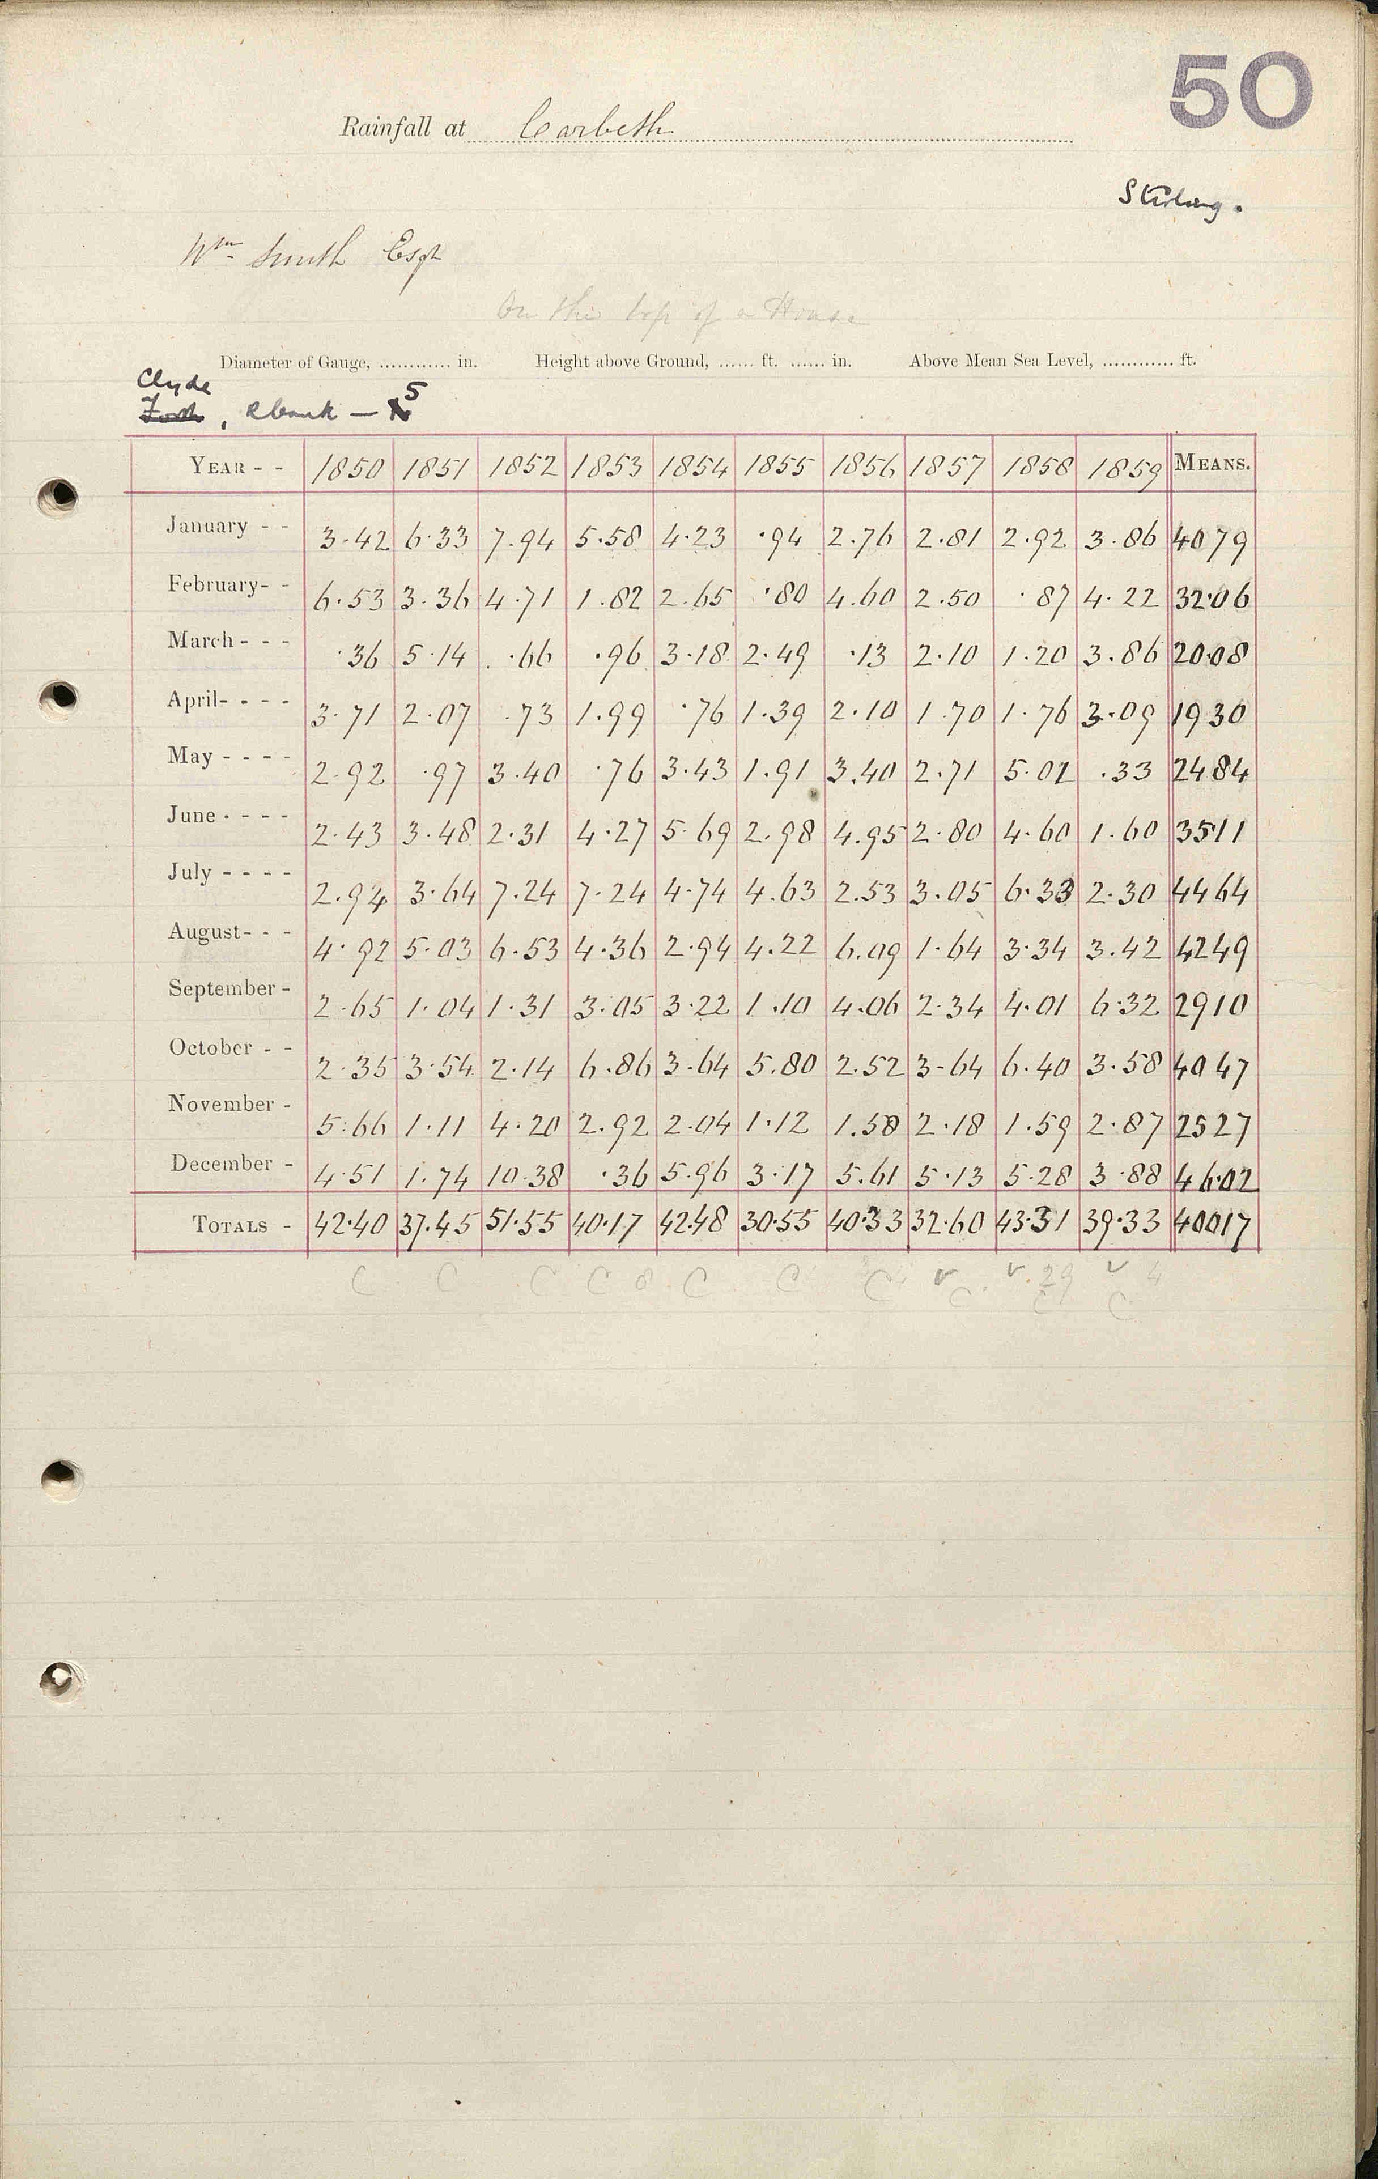 50
Rainfall at Carbeth
Stirling.
Wm Smith Esqr
On the top of a House
Diameter of Gauge, ............ in. Height above Ground, ...... ft. ...... in. Above Mean Sea Level, ............ ft.
Clyde
Forth, Rbank — 5
YEAR - - 1850 1851 1852 1853 1854 1855 1856 1857 1858 1859 MEANS.
January - - 3.42 6.33 7.94 5.58 4.23 .94 2.76 2.81 2.92 3.86 4079
February- - 6.53 3.36 4.71 1.82 2.65 .80 4.60 2.50 .87 4.22 32.06
March - - - .36 5.14 .66 .96 3.18 2.49 .13 2.10 1.20 3.86 20.08
April- - - - 3.71 2.07 .73 1.99 .76 1.39 2.10 1.70 1.76 3.09 1930
May - - - - 2.92 .97 3.40 .76 3.43 1.91 3.40 2.71 5.01 .33 2484
June - - - - 2.43 3.48 2.31 4.27 5.69 2.98 4.95 2.80 4.60 1.60 3511
July - - - - 2.94 3.64 7.24 7.24 4.74 4.63 2.53 3.05 6.33 2.30 4464
August- - - 4.92 5.03 6.53 4.36 2.94 4.22 6.09 1.64 3.34 3.42 4249
September - 2.65 1.04 1.31 3.05 3.22 1.10 4.06 2.34 4.01 6.32 2910
October - - 2.35 3.54 2.14 6.86 3.64 5.80 2.52 3.64 6.40 3.58 4047
November - 5.66 1.11 4.20 2.92 2.04 1.12 1.58 2.18 1.59 2.87 2527
December - 4.51 1.74 10.38 .36 5.96 3.17 5.61 5.13 5.28 3.88 46.02
TOTALS - 42.40 37.45 51.55 40.17 42.48 30.55 40.33 32.60 43.31 39.33 40017
C C C C 8 C C C C 29 C 4 C